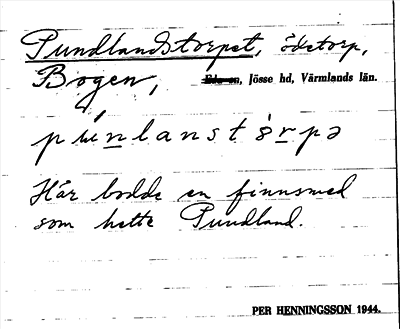 Pundlandstorpet, ödetorp,
Bogen, Jösse hd, Värmlands län.
pùnlanstórpə
Här bodde en finnsmed
som hette Pundland.
PER HENNINGSSON 1944.